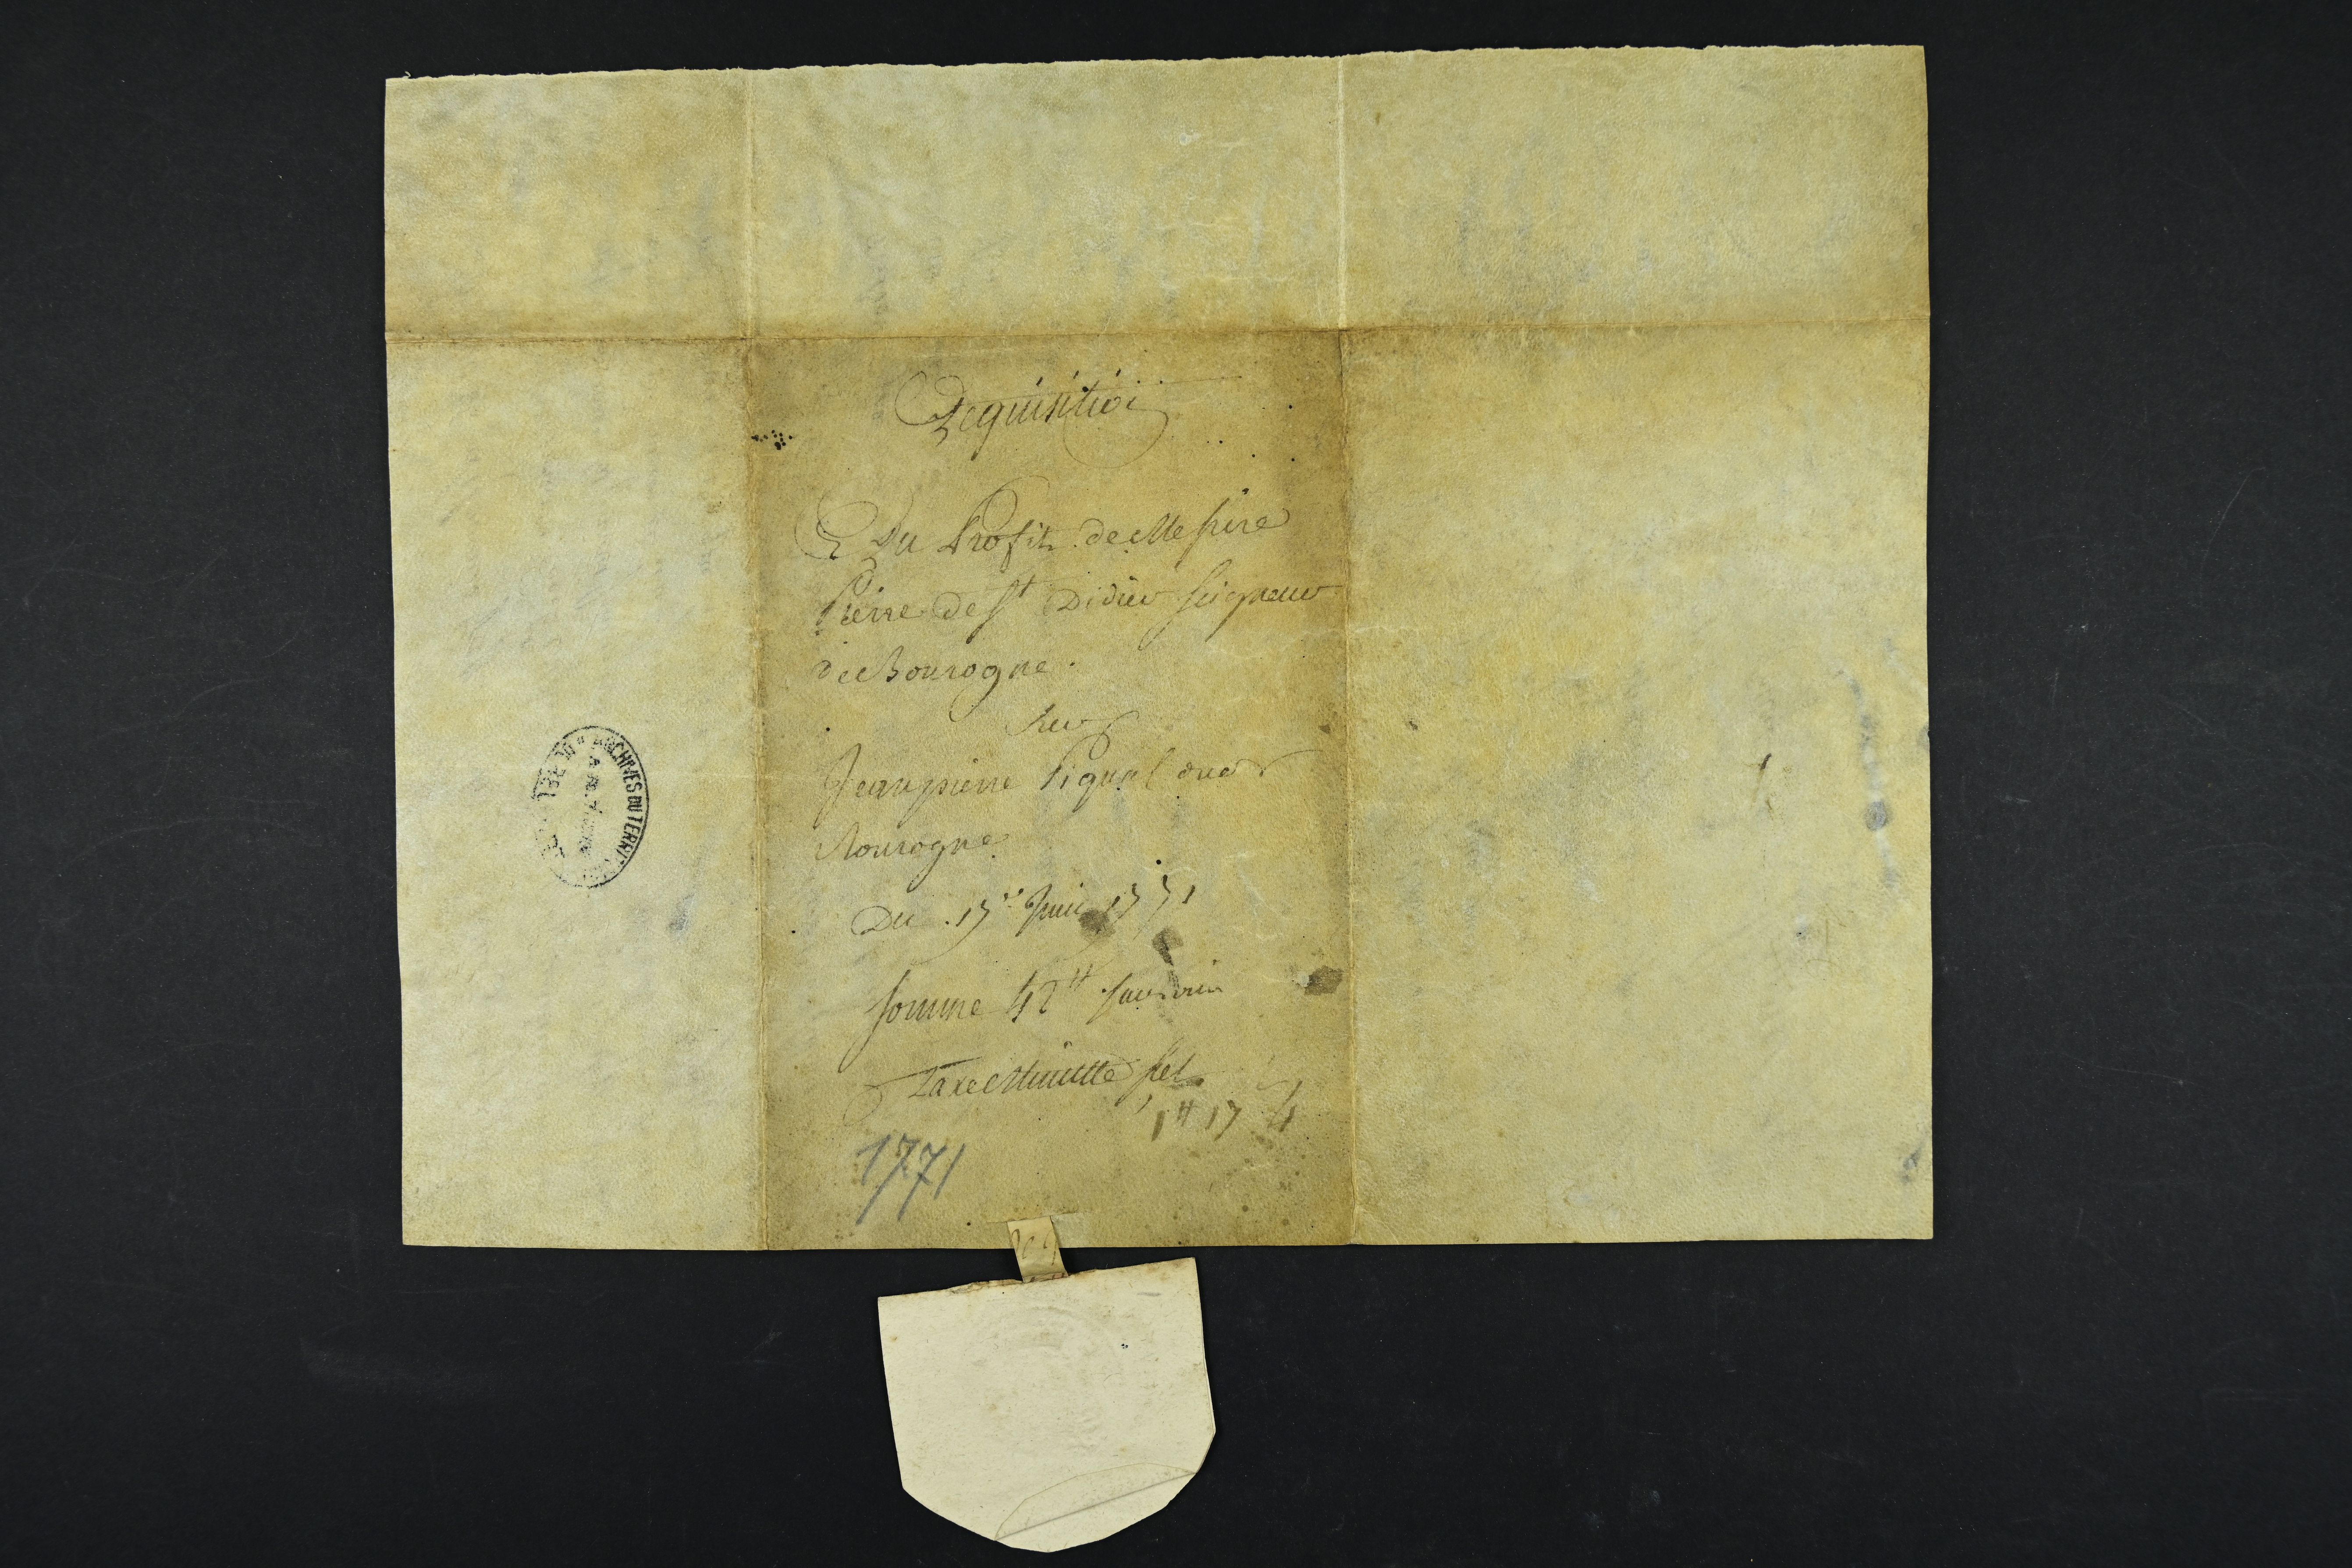 Acquisition
Au Profit de Messire
Pierre de St Didier Seigneur
de Bourogne.
Sur
Jeanpierre Piquerel dud.
Bourogne
Du 17e Juin 1771
Somme 42# sans vin
Taxe Minutte scel
1# 17 4
1771
ARCHIVES DU TERRI